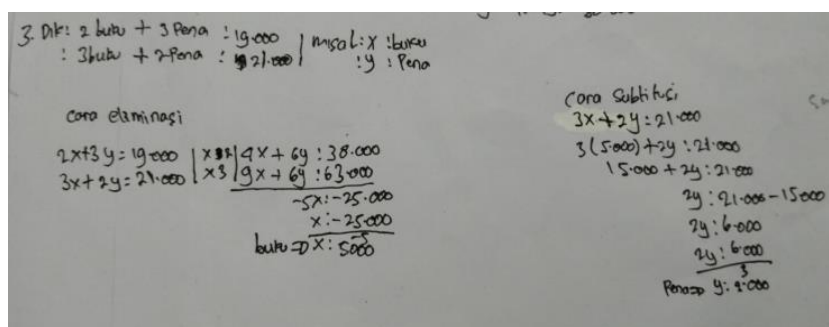 3. Dik: 2 buku + 3 Pena : 19.000
: 3buku + 2Pena : 21.000
misal: x : buku
: y : Pena
cara elaminasi
2x+3y = 19.000 | x2 | 4x + 6y : 38.000
3x+2y = 21.000 | x3 | 9x + 6y : 63.000
-5x : -25.000
x : -25.000
-5
buku => x : 5000
Cara Subtitusi
3x+2y : 21.000
3(5.000)+2y : 21.000
15.000 + 2y : 21.000
2y : 21.000 - 15000
2y : 6.000
2y : 6.000
3
Pena => y : 2.000